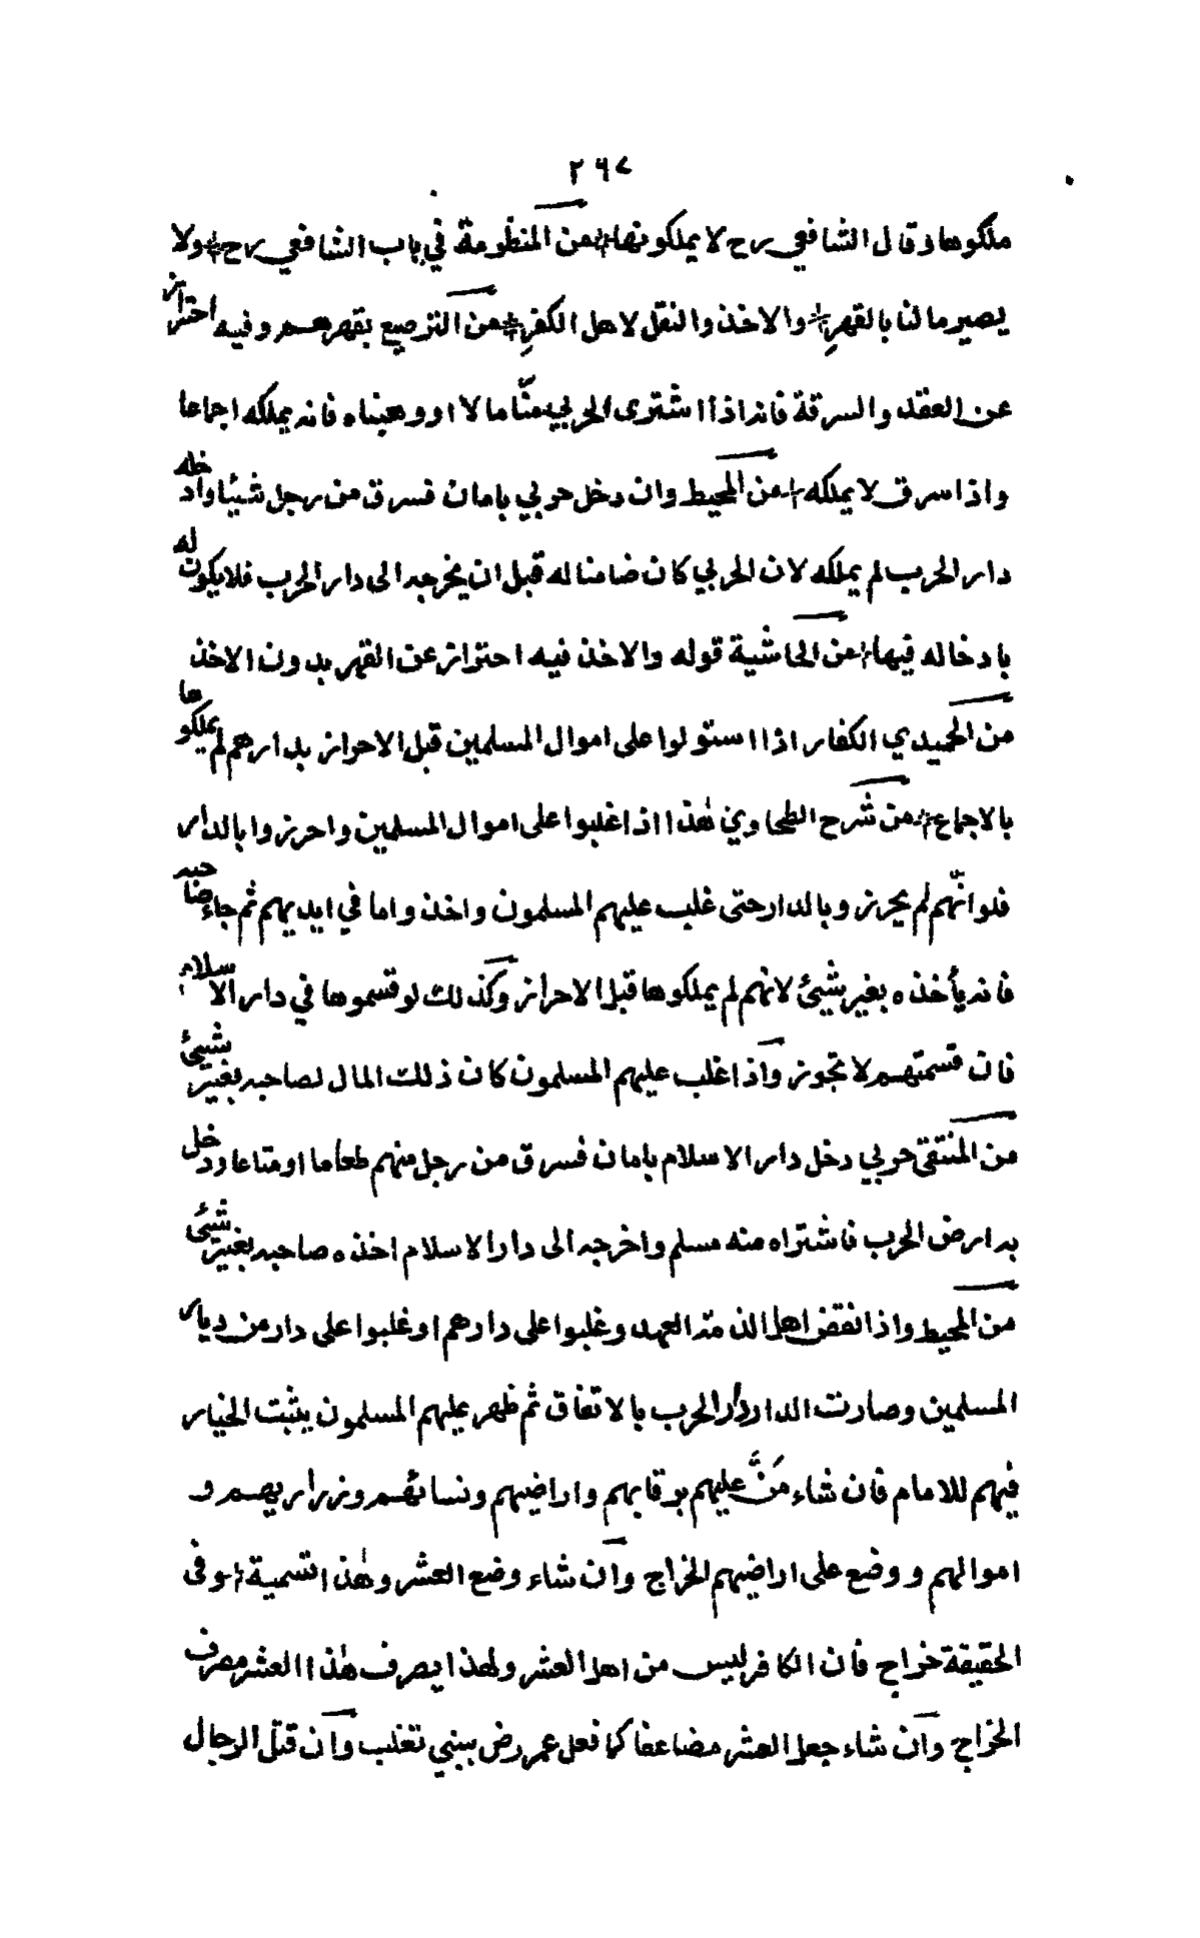 ٢٦٧
ملكوها وقال الشافعي رح لا يملكونها من المنظومة في باب الشافعي رح ولا
يصير مالنا بالقهر والاخذ والنقل لاهل الكفر من الترصيع بقهرهم وفيه احتراز
عن العقد والسرقة فانه اذا اشترى الحربي منّا مالا او وهبناه فانه يملكه اجماعا
واذا سرق لا يملكه من المحيط وان دخل حربي بامان فسرق من رجل شيئا وادخله
دار الحرب لم يملكه لان الحربي كان ضامنا له قبل ان يخرجه الى دار الحرب فلا يكون له
بادخاله فيها من الحاشية قوله والاخذ فيه احتراز عن القهر بدون الاخذ
من الحميدي الكفار اذا استولوا على اموال المسلمين قبل الاحراز بدارهم لم يملكوها
بالاجماع من شرح الطحاوي هذا اذا غلبوا على اموال المسلمين واحرزوا بالدار
فلو انّهم لم يحرزوا بالدار حتى غلب عليهم المسلمون واخذوا ما في ايديهم ثم جاء صاحبه
فانه يأخذه بغير شيئ لانهم لم يملكوها قبل الاحراز وكذلك لو قسموها في دار الاسلام
فان قسمتهم لا تجوز واذا غلب عليهم المسلمون كان ذلك المال لصاحبه بغير شيئ
من المنتقى حربي دخل دار الاسلام بامان فسرق من رجل منهم طعاما او متاعا ودخل
به ارض الحرب فاشتراه منه مسلم واخرجه الى دار الاسلام اخذه صاحبه بغير شيئ
من المحيط واذا نقض اهل الذمة العهد وغلبوا على دارهم او غلبوا على دار من ديار
المسلمين وصارت الدار دار الحرب بالاتفاق ثم ظهر عليهم المسلمون يثبت الخيار
فيهم للامام فان شاء مَنَّ عليهم برقابهم واراضيهم ونسائهم وذراريهم و
اموالهم ووضع على اراضيهم الخراج وان شاء وضع العشر وهذا تسمية وفى
الحقيقة خراج فان الكافر ليس من اهل العشر ولهذا يصرف هذا العشر مصرف
الخراج وان شاء جعل العشر مضاعفا كما فعل عمر رض ببني تغلب وان قتل الرجال